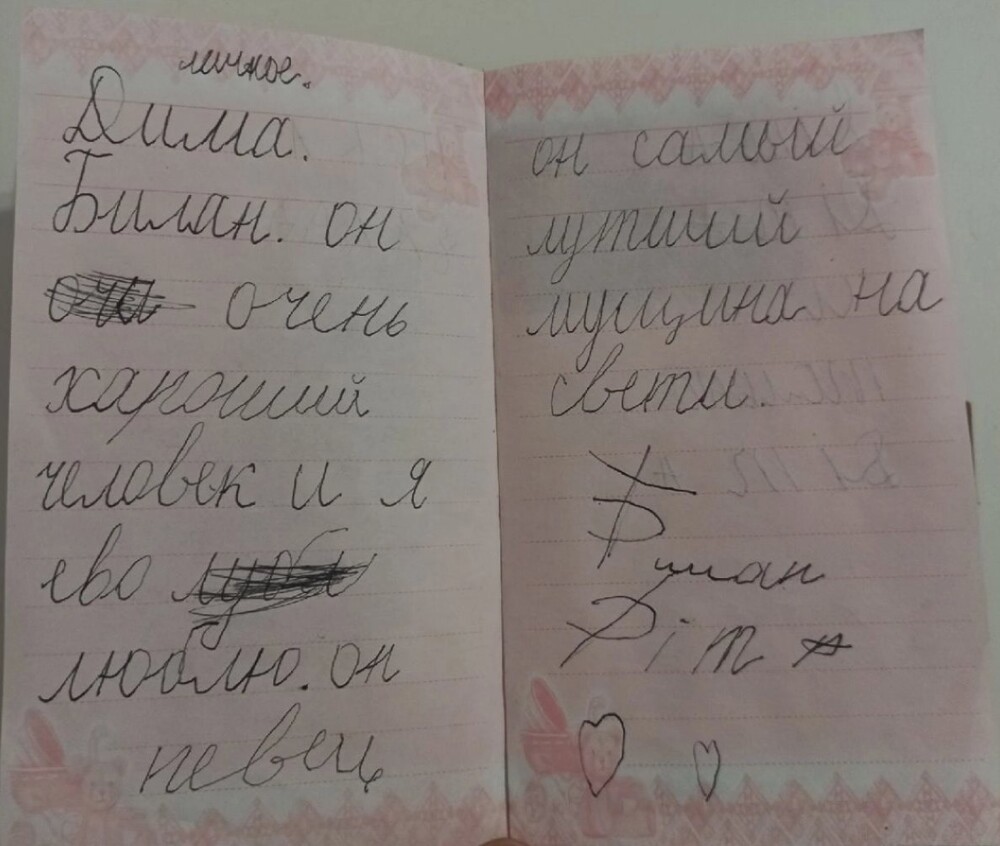 личное.
Дима.
Билан. он
очень
хароший
человек и я
ево
люблю. он
певец
он самый
лутший
мущина на
свети.
Билан